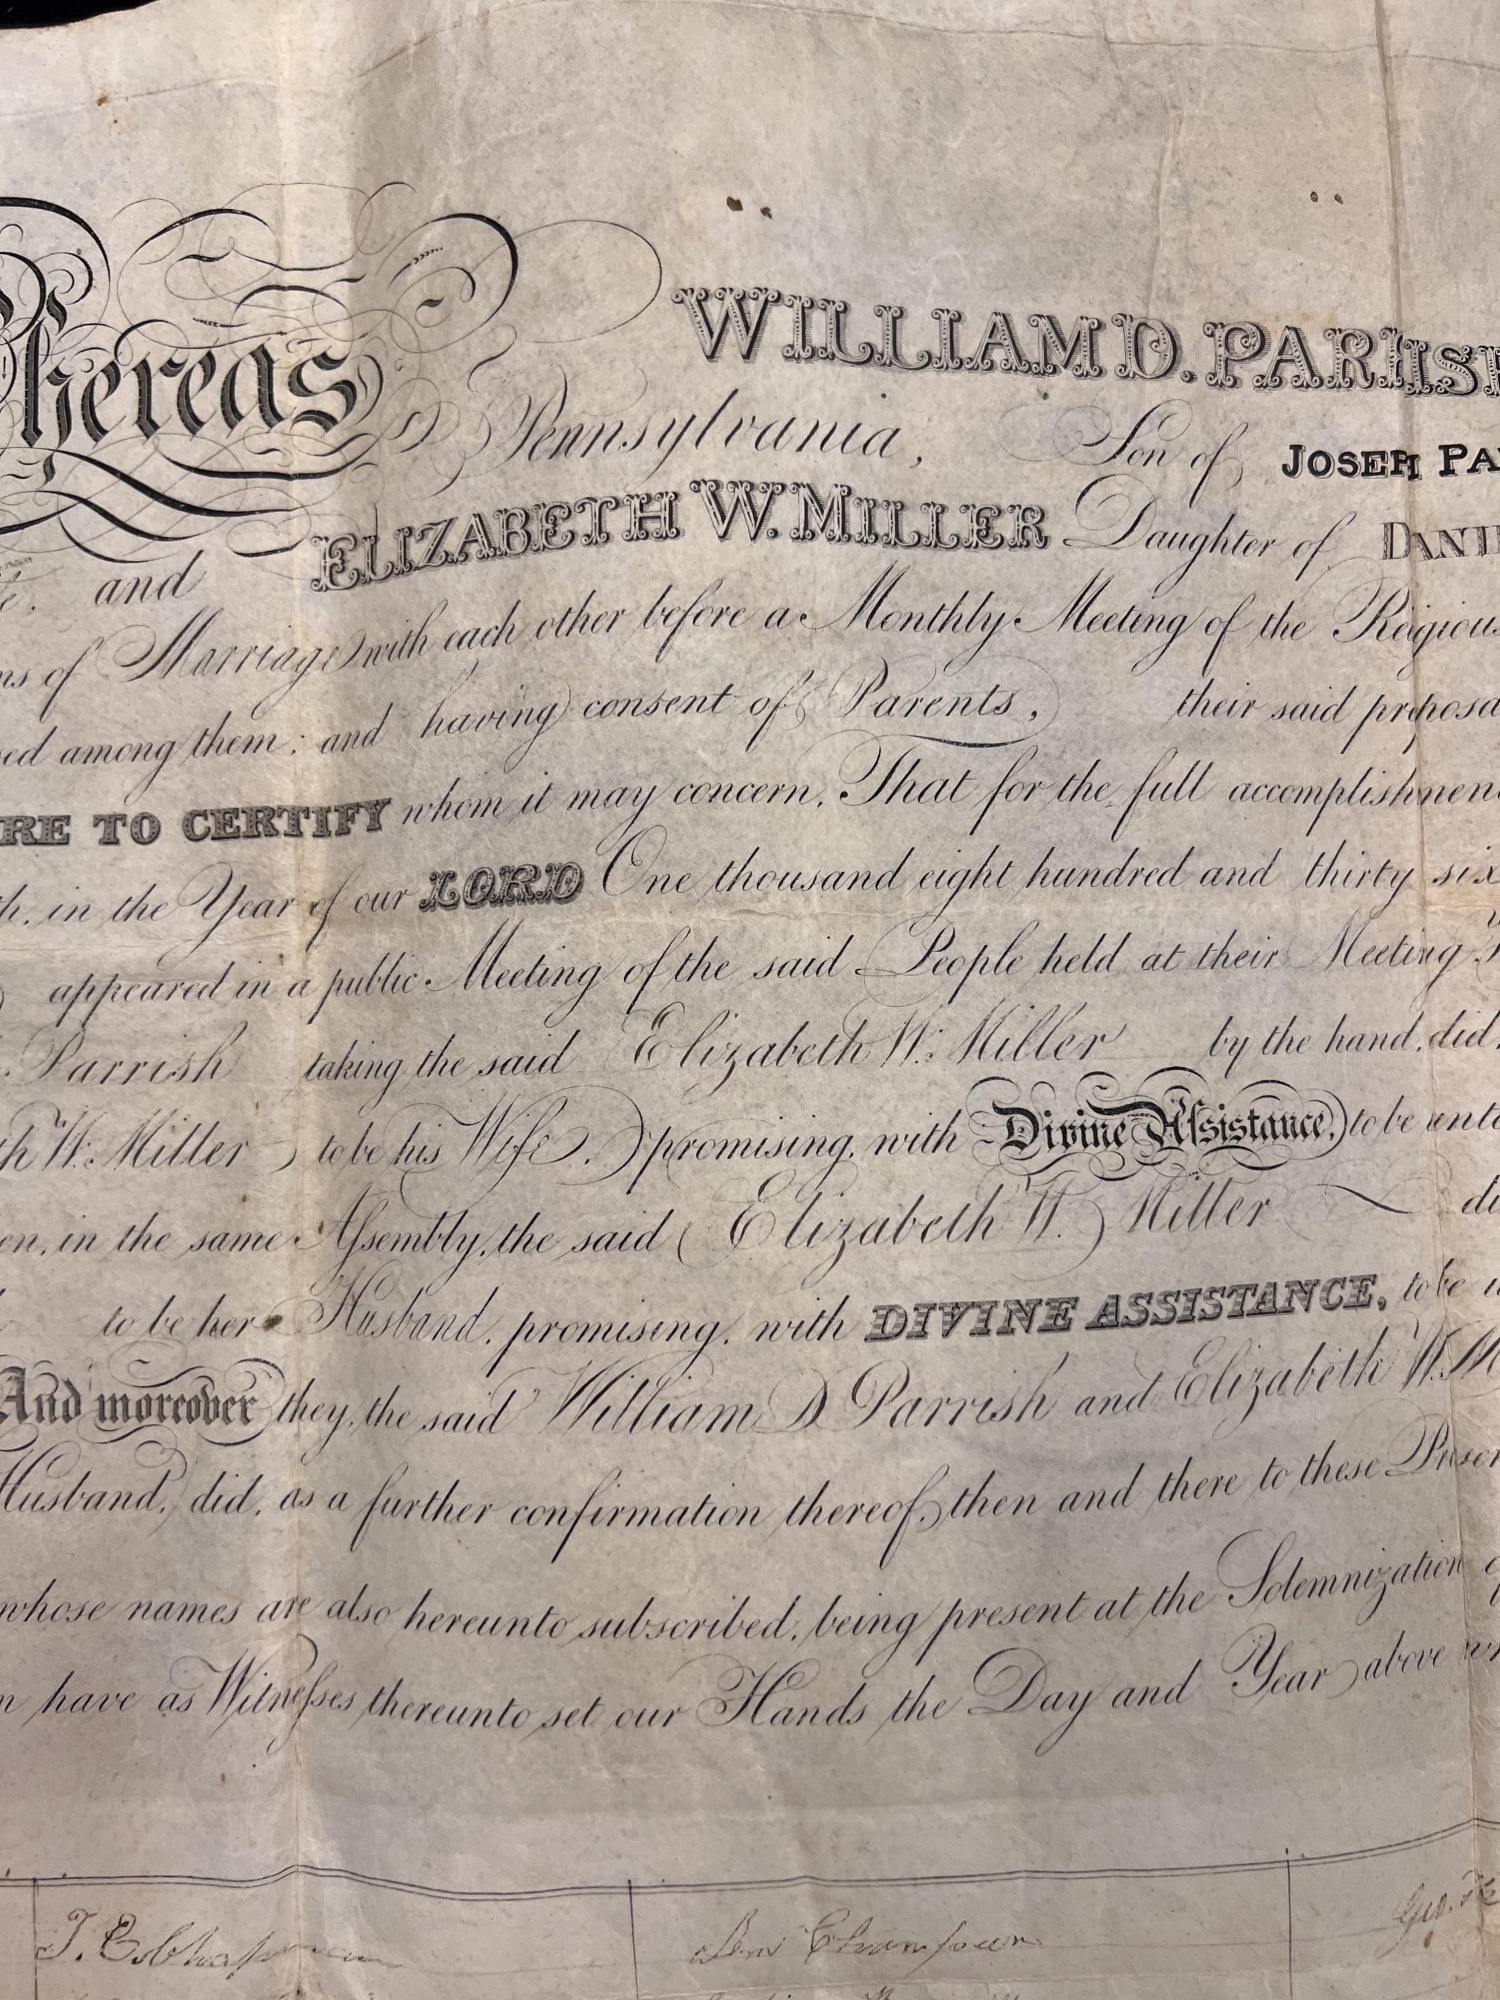 Whereas WILLIAM D. PARRISH
Pennsylvania, Son of JOSEPH PA
and ELIZABETH W. MILLER Daughter of DANIE
ns of Marriage with each other before a Monthly Meeting of the Religious
ed among them; and having consent of Parents, their said proposa
RE TO CERTIFY whom it may concern, That for the full accomplishmen
th, in the Year of our LORD One thousand eight hundred and thirty six
appeared in a public Meeting of the said People held at their Meeting
Parrish taking the said Elizabeth W. Miller by the hand, did,
th W. Miller to be his Wife, promising, with Divine Assistance, to be unto
en, in the same Assembly, the said Elizabeth W. Miller di
to be her Husband, promising, with DIVINE ASSISTANCE, to be u
And moreover they, the said William D Parrish and Elizabeth W. M
Husband, did, as a further confirmation thereof, then and there to these Presen
whose names are also hereunto subscribed, being present at the Solemnization o
n have as Witnesses thereunto set our Hands the Day and Year above wr
T. E. Chapman